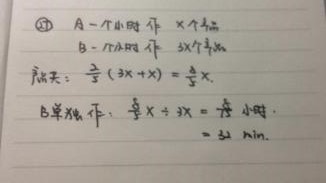 ㉗ A 一个小时作 x个产品
B 一个小时作 3x个产品
2/5 (3x+x) = 8/5 x.
B单独作: 8/5 x ÷ 3x = 8/15 小时.
= 32 min.